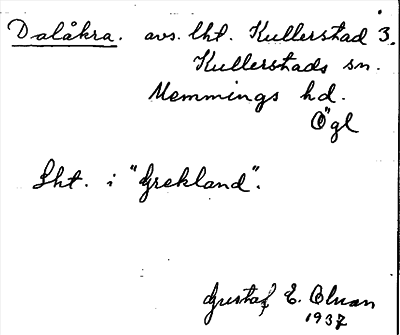 Dalåkra. avs. lht. Kullerstad 3.
Kullerstads sn.
Memmings hd.
Ögl
Lht. i "Grekland".
Gustaf E. Olman
1937